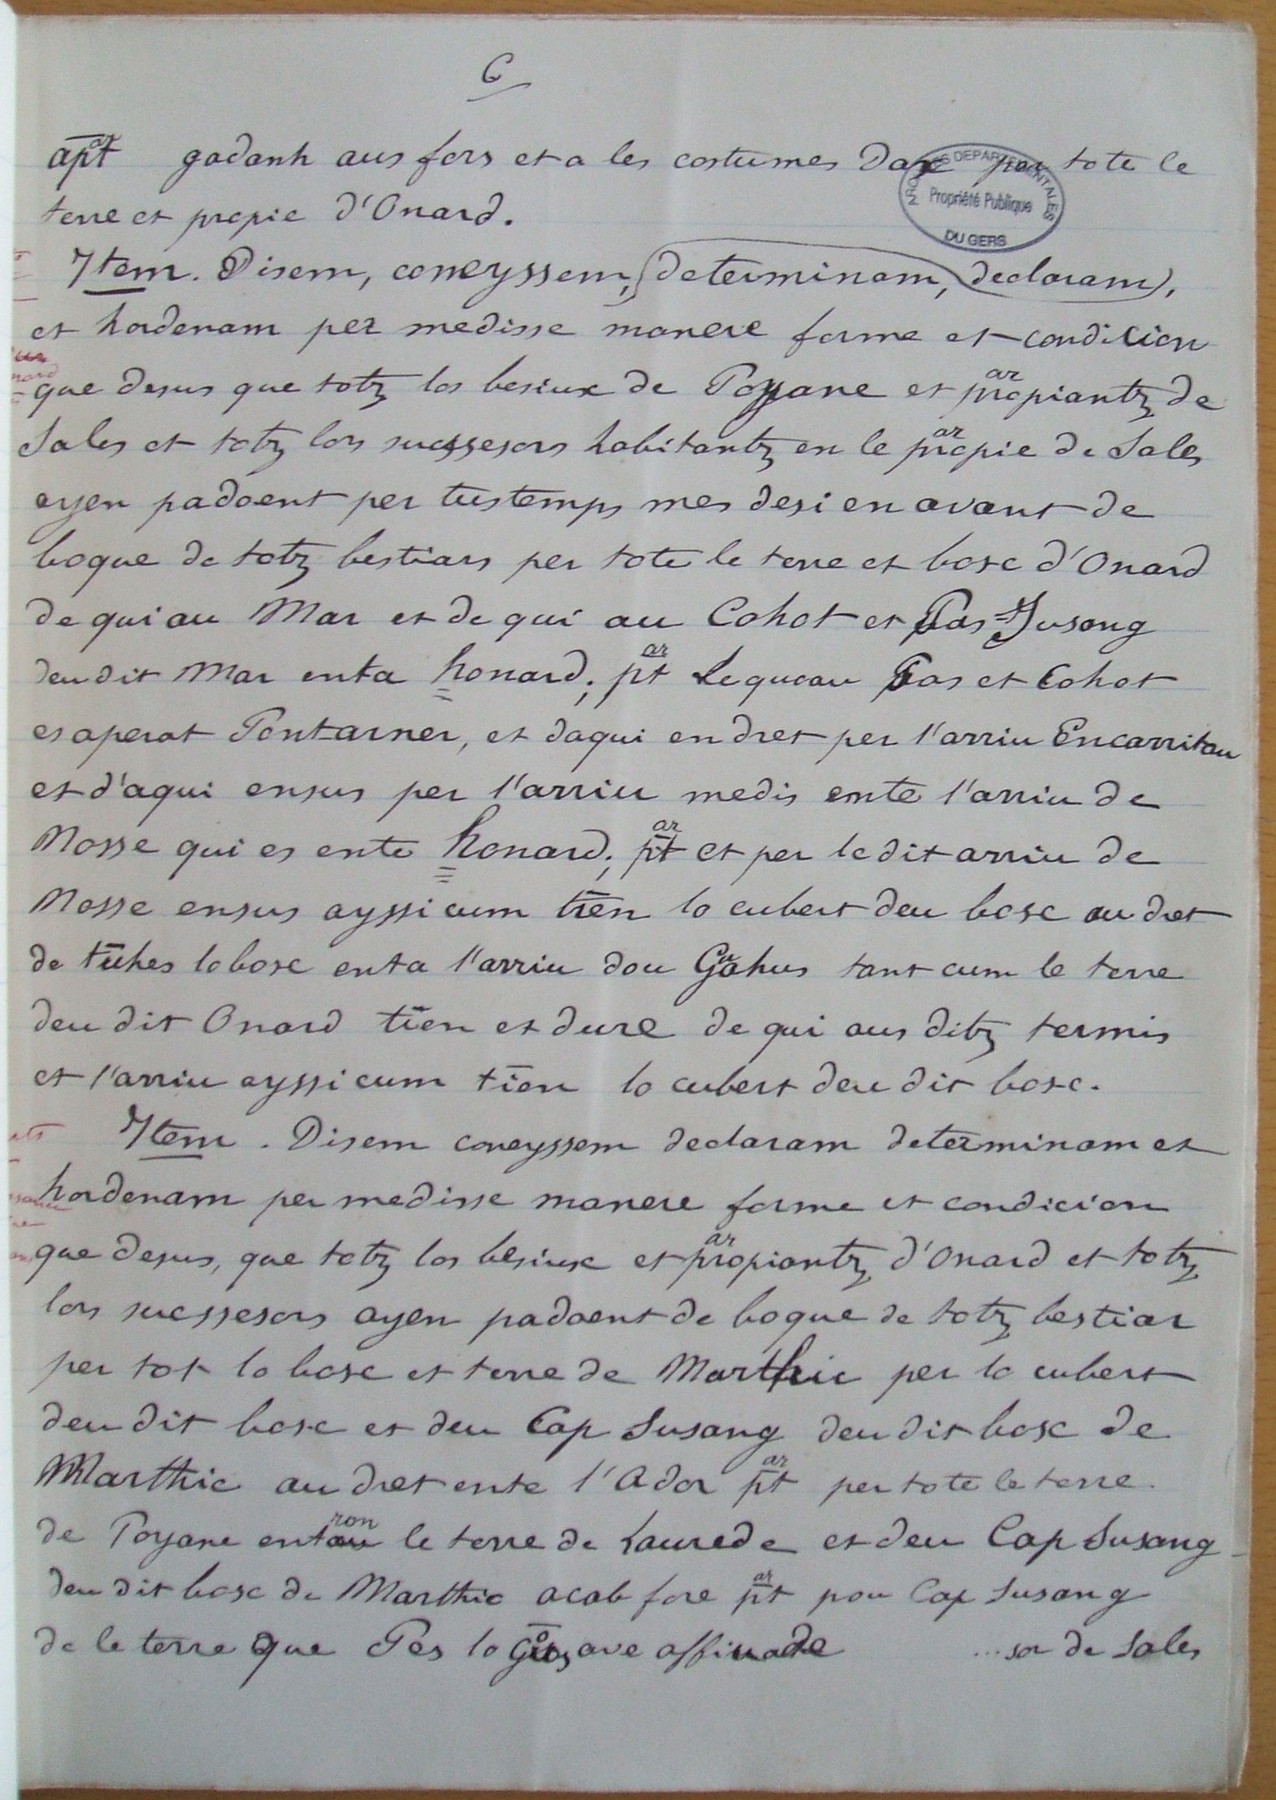 6
ARCHIVES DEPARTEMENTALES
Propriété Publique
DU GERS
apt ar gadanh aus fors et a les costumes Dax per tote le
terre et propie d'Onard.
Item. Disem, coneyssem, determinam, declaram,
et hordenam per medisse manere forme et condicion
que desus que totz los besiux de Poyane et propiantz ar de
Sales et totz lors successors habitantz en le propie ar de Sales
ayen padoent per tustemps mes desi en avant de
boque de totz bestiars per tote le terre et bosc d'Onard
de qui au Mar et de qui au Cohot et Pas-Jusang
deu dit Mar enta honard; pt ar Lequeau Pas et Cohot
es aperat Pontarner, et daqui en dret per l'arriu Encarritau
et d'aqui ensus per l'arriu medis ente l'arriu de
Mosse qui es ente honard; pt ar et per le dit arriu de
Mosse ensus ayssi cum tien lo cubert deu bosc au dret
de tuhes lo bosc enta l'arriu dou Gahus tant cum le terre
deu dit Onard tien et dure de qui aus ditz termis
et l'arriu ayssi cum tien lo cubert deu dit bosc.
Item. Disem coneyssem declaram determinam et
hordenam per medisse manere forme et condicion
que desus, que totz los besiux et propiantz ar d'Onard et totz
lors successors ayen padoent de boque de totz bestiar
per tot lo bosc et terre de Marthic per lo cubert
deu dit bosc et deu Cap Susang deu dit bosc de
Marthic au dret ente l'Ador pt ar per tote le terre
de Poyane entau ron le terre de Laurede et deu Cap Susang
deu dit bosc de Marthic acab fore pt ar pou Cap Susang
de le terre que Pes lo ave affinade ...sor de Sales